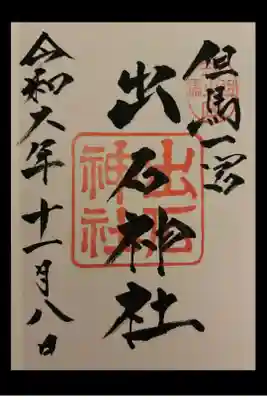 但馬一宮
出石神社
出石
神社
令和六年十一月八日